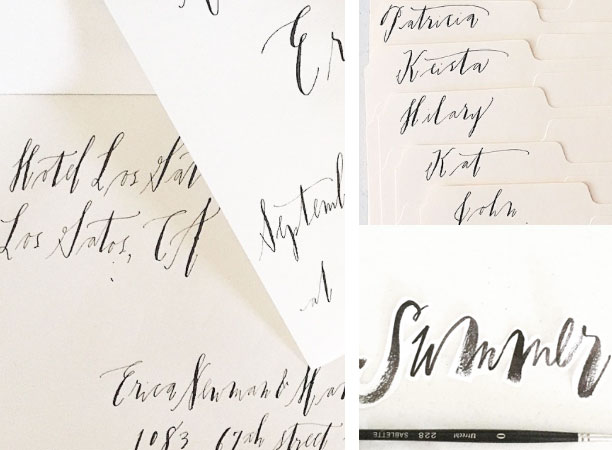 Er
Hotel Los Gat
Los Gatos, CA
Septemb
at
Erica Newman &
1083 67th street
Patricia
Keista
Hilary
Kat
John
Summer
0 Utrecht 228 SABLETTE